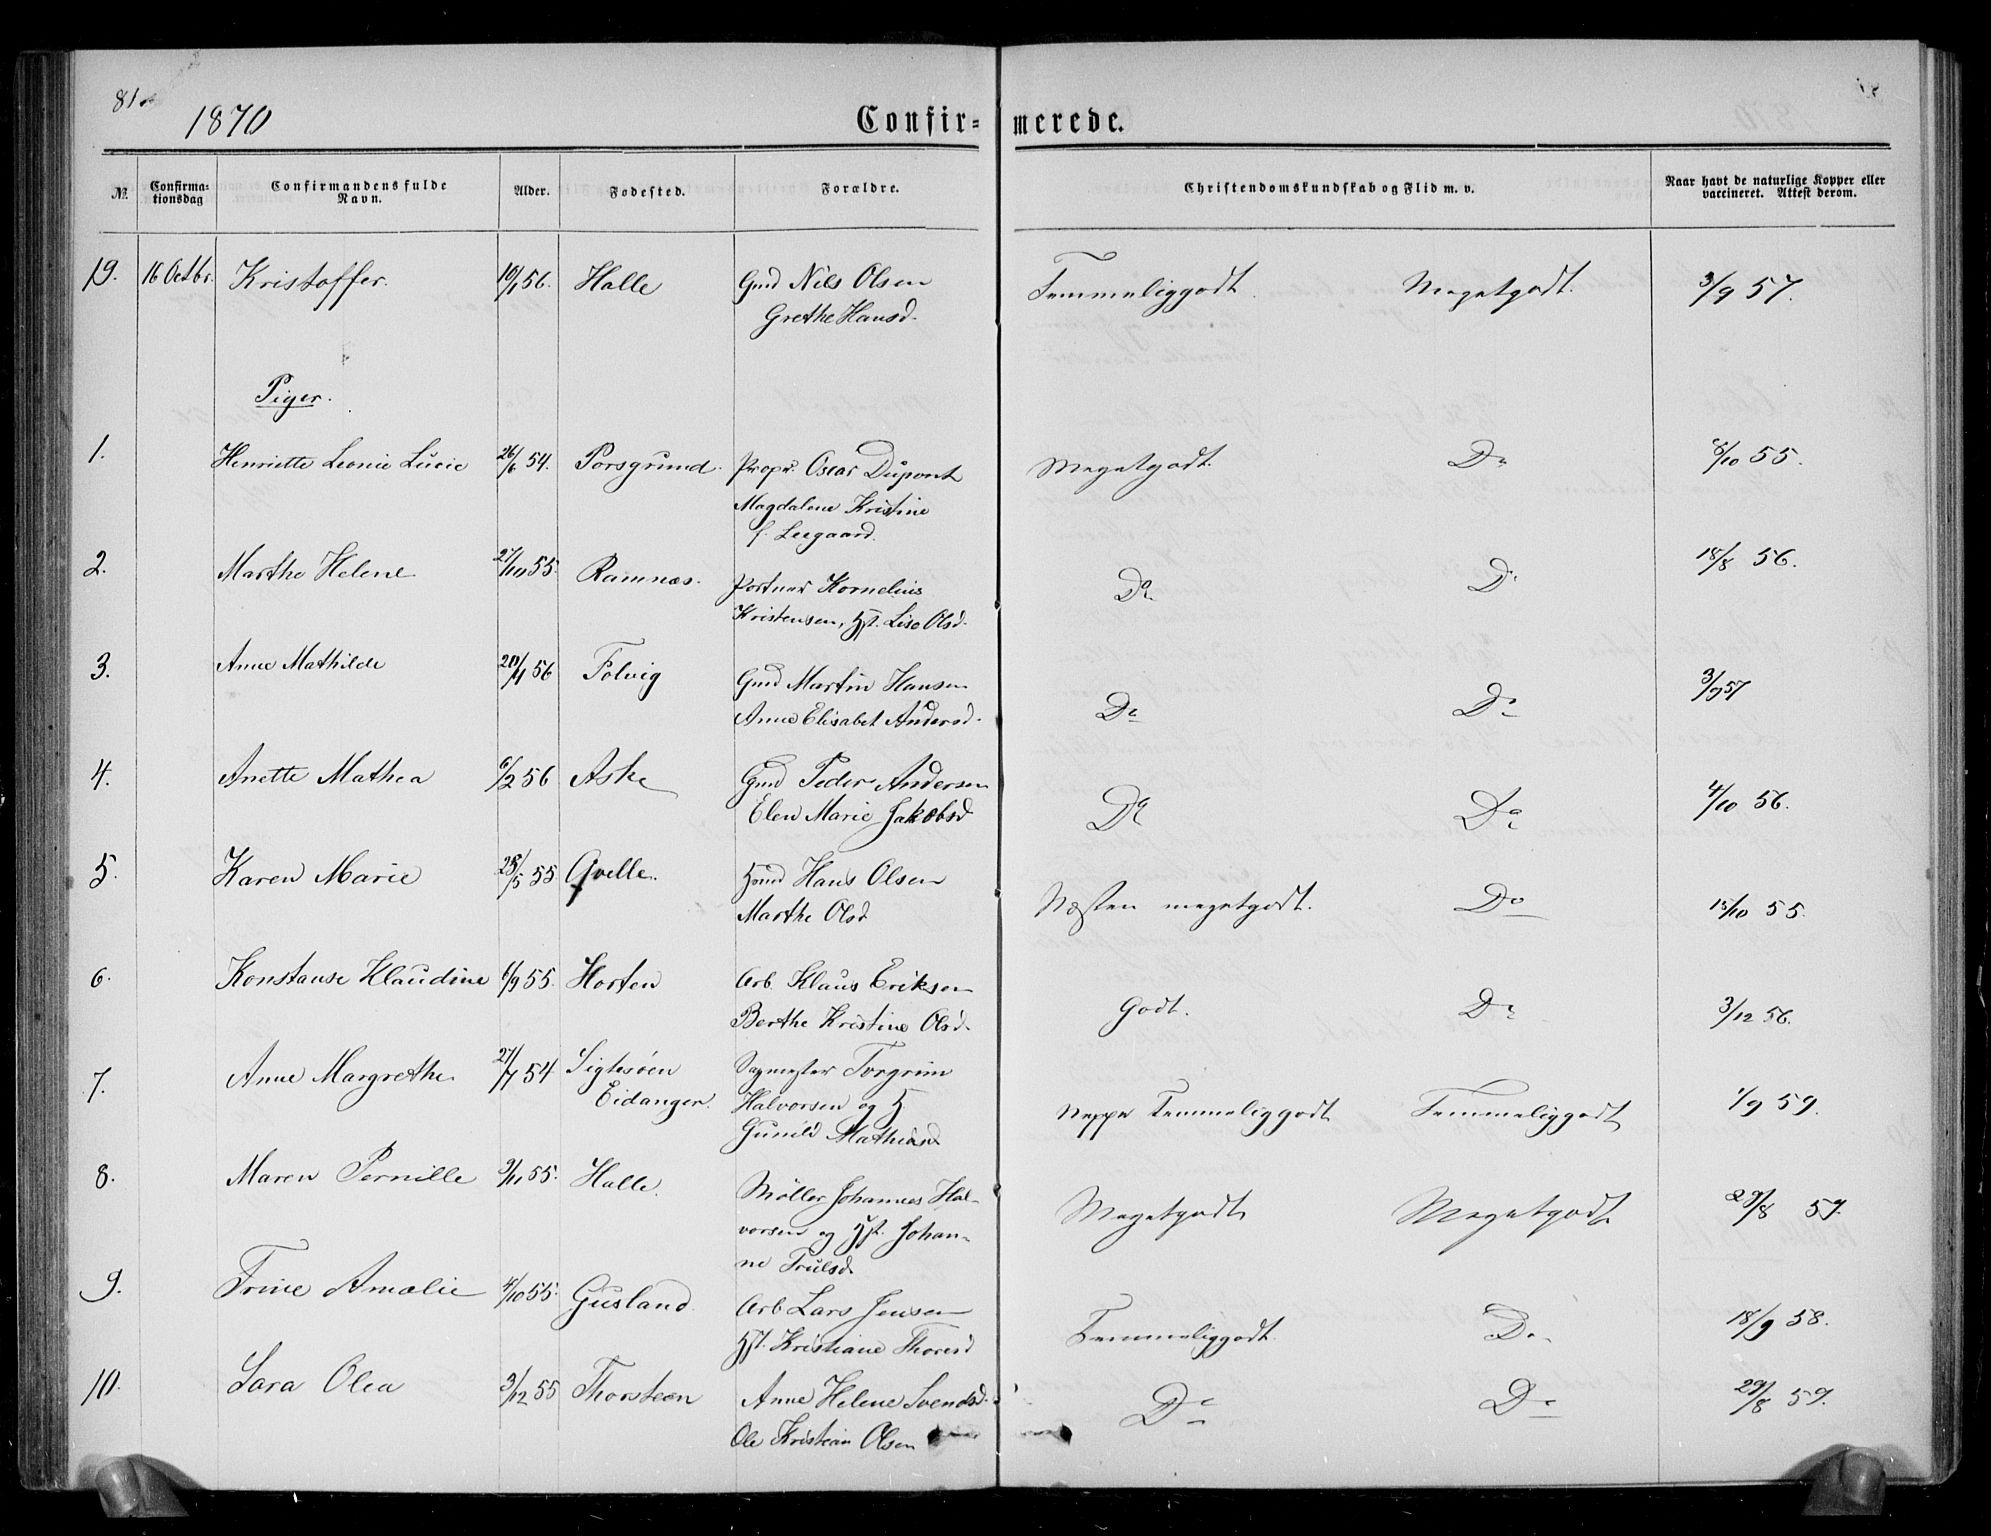 81.
1870
Confirmerede.
No. Confirmationsdag Confirmandens fulde Navn. Alder. Fødested. Forældre. Christendomskundskab og Flid m. v. Naar havt de naturlige Kopper eller vaccineret. Attest derom.
19. 16 Octbr. Kristoffer. 10/1 56. Halle Gmd Nils Olsen Temmeliggodt. Megetgodt. 3/9 57.
Grethe Hansd.
Piger.
1. Henriette Leonie Lucie 26/6 54. Porsgrund. Propr. Oscar Dupont Megetgodt. Do 8/10 55.
Magdalene Kristine
f. Leegaard.
2. Marthe Helene 27/10 55. Ramnæs. Portner Kornelius Do Do 18/8 56.
Kristensen, Hst. Lise Olsd.
3. Anne Mathilde 20/4 56 Folvig Gmd Martin Hansen Do Do 3/9 57
Anne Elisabet Andersd.
4. Anette Mathea 6/2 56 Aske Gmd Peder Andersen Do Do 4/10 56.
Elen Marie Jakobsd
5. Karen Marie 25/5 55 Qvelle. Hmd Hans Olsen Næsten megetgodt. Do 13/10 55.
Marthe Olsd
6. Konstanse Klaudine 6/9 55. Horten Arb. Klaus Eriksen Godt. Do 3/12 56.
Berthe Kristine Olsd.
7. Anne Margrethe 27/7 54 Sigtesøen Sagmester Torgrim Neppe Temmeliggodt Temmeliggodt 1/9 59.
Eidanger. Halvorsen og H.
Gunild Mathiasd
8. Maren Pernille 9/11 55. Halle. Møller Johannes Hal- Megetgodt Megetgodt 29/8 59.
vorsen og Hst. Johan-
ne Trulsd.
9. Trine Amalie 4/10 55. Gusland. Arb. Lars Jensen Temmeliggodt. Do 18/9 58.
Hst. Kristiane Thoresd
10. Sara Olea 3/12 55 Thorsteen Anne Helene Svendsd. Do Do 29/8 59.
Ole Kristian Olsen